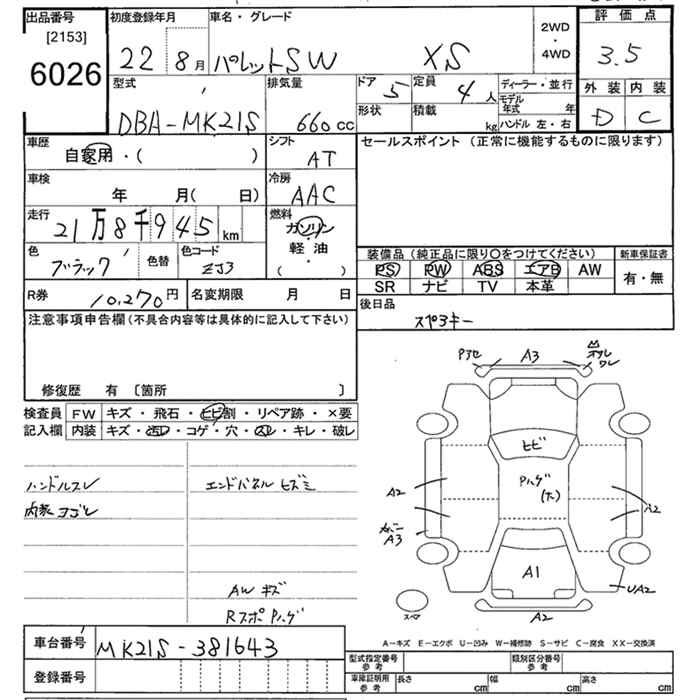 出品番号 初度登録年月 車名・グレード 2WD・4WD 評価点
[2153]
6026 22 8月 パレットSW XS 3.5
型式 排気量 ドア 5 定員 4人 ディーラー・並行 外装 内装
DBA-MK21S 660cc 形状 積載 kg モデル年式 年 D C
ハンドル 左・右
車歴 シフト セールスポイント (正常に機能するものに限ります)
自家用・( ) AT
車検 冷房
年 月( 日) AAC
走行 燃料
21万8千945km ガソリン
軽・油
( )
色 色替 色コード 装備品 (純正品に限り○をつけてください) 新車保証書
ブラック ZJ3 PS PW ABS エアB AW 有・無
SR ナビ TV 本革
R券 10,270円 名変期限 月 日 後日品
注意事項申告欄(不具合内容等は具体的に記入して下さい) スペアキー
修復歴 有〔箇所 〕
検査員 FW キズ・飛石・ヒビ割・リペア跡・×要
記入欄 内装 キズ・汚レ・コゲ・穴・スレ・キレ・破レ
ハンドルスレ エンドパネル ヒズミ
内装 ヨゴレ
AW キズ
Rスポ Pハゲ
A3
ワレ
ヒビ
Pハゲ
(大)
A2 A2
カバー
A3
A1
UA2
スペア A2
A-キズ E-エクボ U-凹み W-補修跡 S-サビ C-腐食 XX-交換済
車台番号 MK21S-381643 型式指定番号 参考 類別区分番号 参考
登録番号 車庫証明用 参考 長さ cm 幅 cm 高さ cm